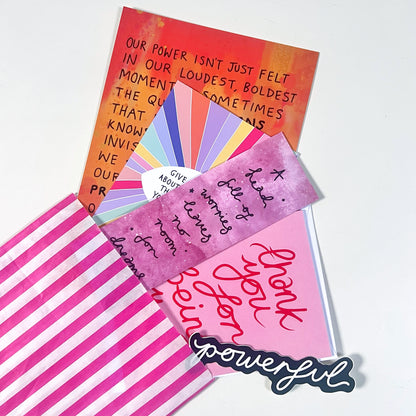 OUR POWER ISN'T JUST FELT
IN OUR LOUDEST, BOLDEST
MOMENTS SOMETIMES
THE
THAT
KNOW
INVIS
WE
OUR
PR
GIVE
ABOUT
TH
A head
full of
worries
leaves
no
room
for
dreams
thank
you
for
being
powerful